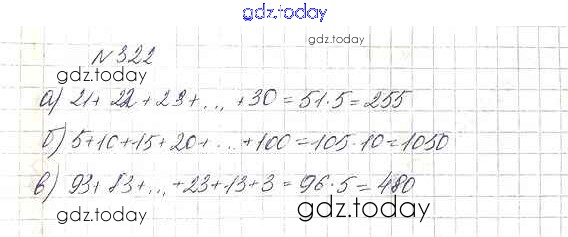 gdz.today
gdz.today
N 322
gdz.today
а) 21 + 22 + 23 + ... + 30 = 51·5 = 255
gdz.today
б) 5 + 10 + 15 + 20 + ... + 100 = 105·10 = 1050
в) 93 + 83 + ... + 23 + 13 + 3 = 96·5 = 480
gdz.today
gdz.today